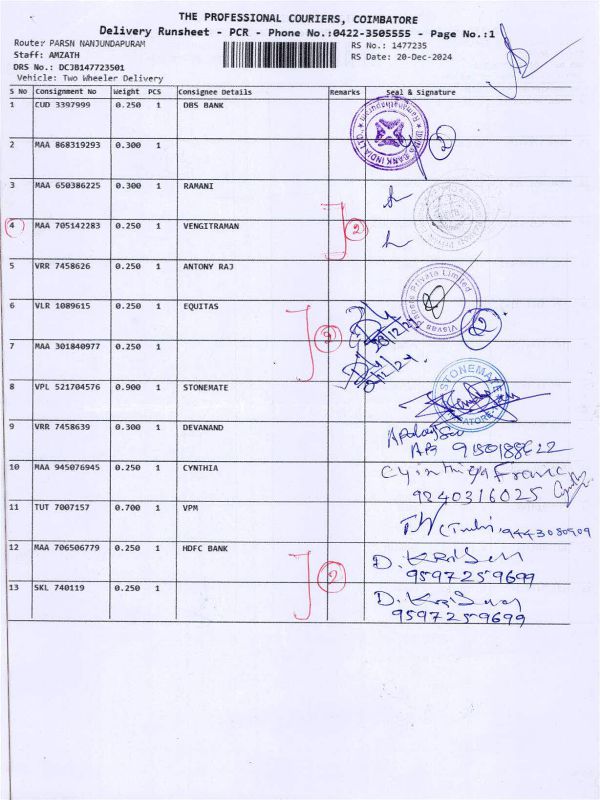 THE PROFESSIONAL COURIERS, COIMBATORE
Delivery Runsheet - PCR - Phone No.:0422-3505555 - Page No.:1
Route: PARSN NANJUNDAPURAM
RS No.: 1477235
Staff: AMZATH
RS Date: 20-Dec-2024
DRS No.: DCJB147723501
Vehicle: Two Wheeler Delivery
S No Consignment No Weight PCS Consignee Details Remarks Seal & Signature
1 CUD 3397999 0.250 1 DBS BANK
2 MAA 868319293 0.300 1 2
3 MAA 650386225 0.300 1 RAMANI
4 MAA 705142283 0.250 1 VENGITRAMAN 2
5 VRR 7458626 0.250 1 ANTONY RAJ
Visvas Papers Private Limited
6 VLR 1089615 0.250 1 EQUITAS
7 MAA 301840977 0.250 1
8 VPL 521704576 0.900 1 STONEMATE
STONEMATE
9 VRR 7458639 0.300 1 DEVANAND
10 MAA 945076945 0.250 1 CYNTHIA
9840316025
11 TUT 7007157 0.700 1 VPM
9443080909
12 MAA 706506779 0.250 1 HDFC BANK 2
9597259699
13 SKL 740119 0.250 1
9597259699